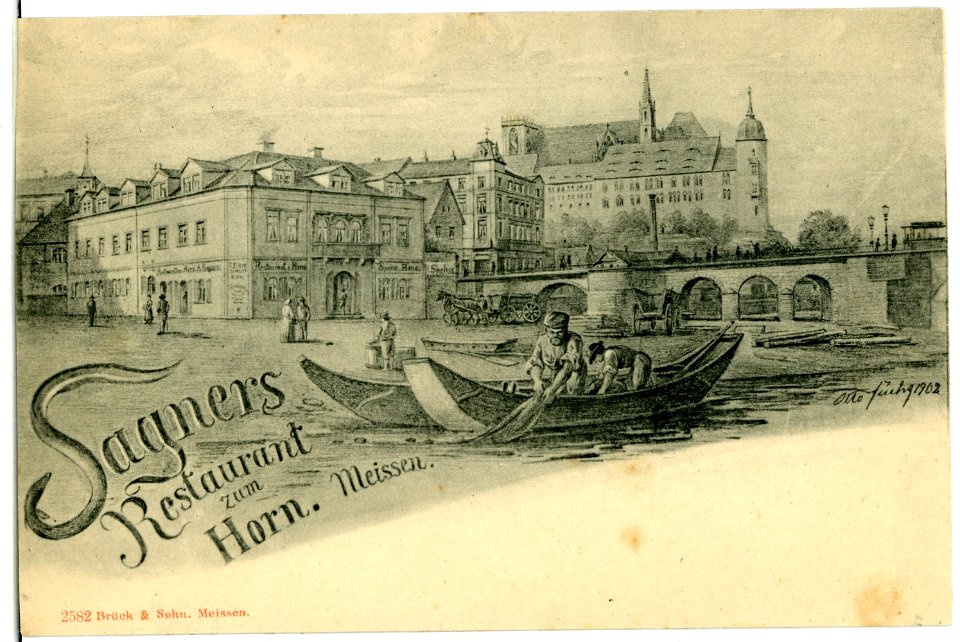 Sagners
Restaurant
zum
Horn. Meissen.
Otto Fuchs 1902
2582 Brück & Sohn. Meissen.